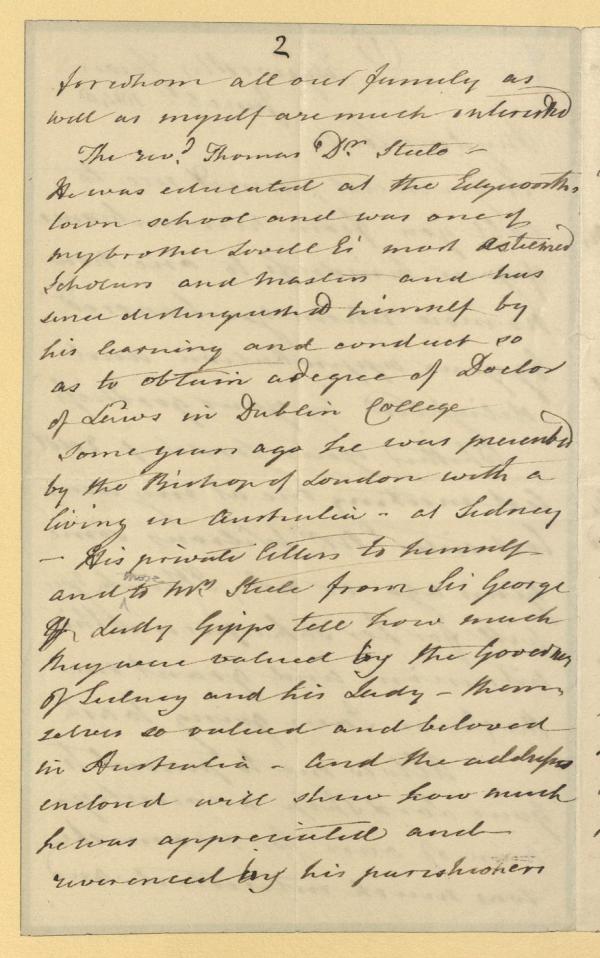 2
for whom all our family as
well as myself are much interested
The revd. Thomas Dr. Steele –
He was educated at the Edgeworths
town school and was one of
my brother Lovell E's most esteemed
Scholars and Masters and has
since distinguished himself by
his learning and conduct so
as to obtain a degree of Doctor
of Laws in Dublin College
Some years ago he was presented
by the Bishop of London with a
living in Australia – at Sidney
– His private letters to himself
those
and to Mrs Steele from Sir George
& Lady Gipps tell how much
they were valued by the Governor
of Sidney and his Lady – them-
selves so valued and beloved
in Australia – and the address
enclosed will shew how much
he was appreciated and
reverenced by his parishioners